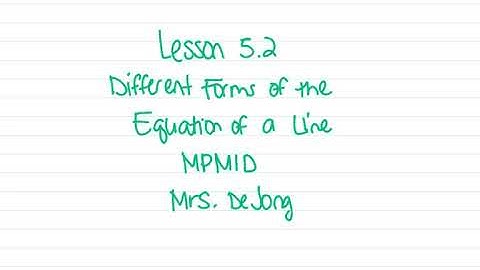 Lesson 5.2
Different Forms of the
Equation of a Line
MPM1D
Mrs. DeJong